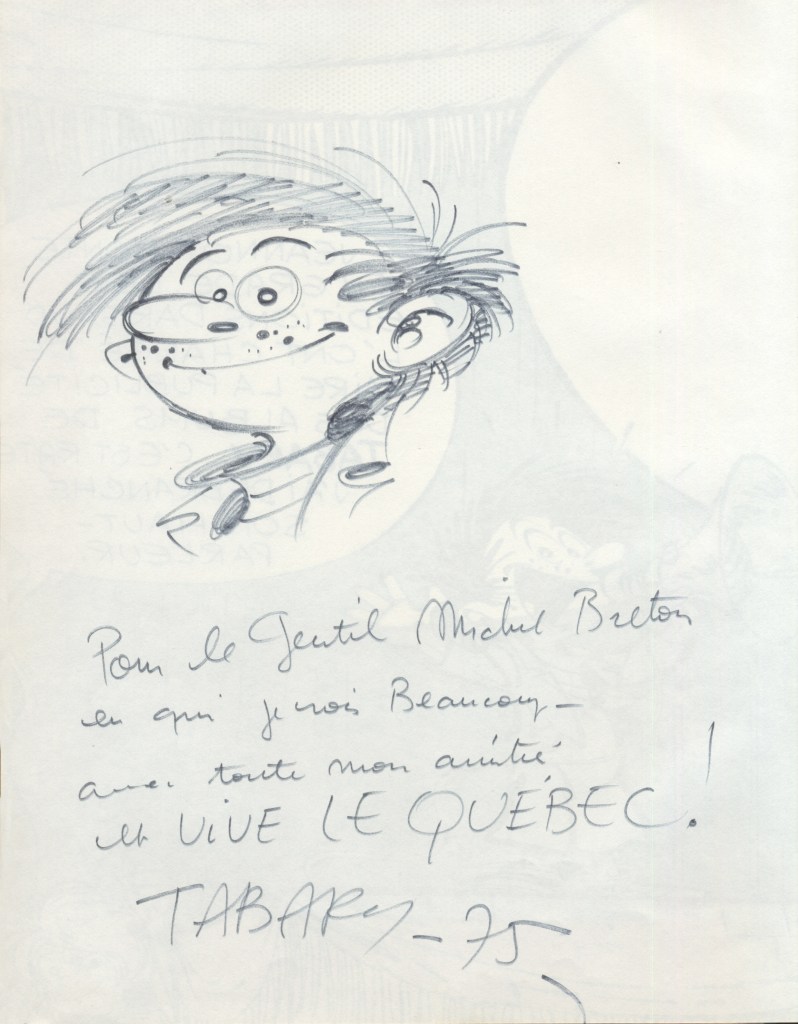 Pour le Gentil Michel Breton
en qui je crois Beaucoup –
avec toute mon amitié
et VIVE LE QUÉBEC !
TABARY – 75